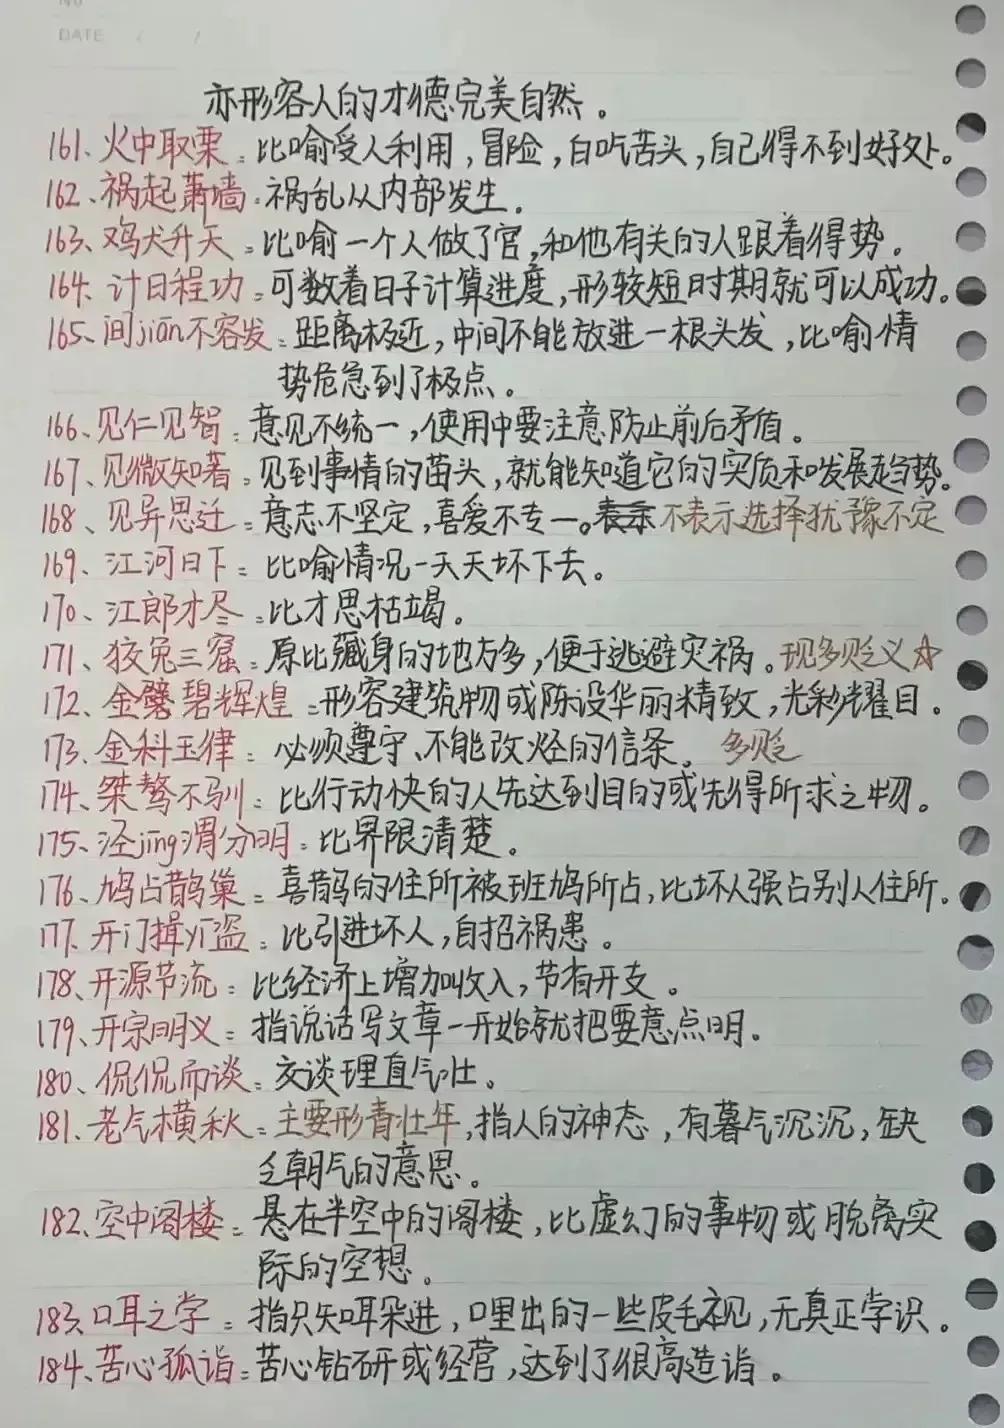 No
DATE / /
亦形容人的才德完美自然。
161、火中取栗：比喻受人利用，冒险，白吃苦头，自己得不到好处。
162、祸起萧墙：祸乱从内部发生。
163、鸡犬升天：比喻一个人做了官，和他有关的人跟着得势。
164、计日程功：可数着日子计算进度，形较短时期就可以成功。
165、间jiān不容发：距离极近，中间不能放进一根头发，比喻情
势危急到了极点。
166、见仁见智：意见不统一，使用中要注意防止前后矛盾。
167、见微知著：见到事情的苗头，就能知道它的实质和发展趋势。
168、见异思迁：意志不坚定，喜爱不专一。表示不表示选择犹豫不定
169、江河日下：比喻情况一天天坏下去。
170、江郎才尽：比才思枯竭。
171、狡兔三窟：原比藏身的地方多，便于逃避灾祸。现多贬义☆
172、金碧辉煌：形容建筑物或陈设华丽精致，光彩耀目。
173、金科玉律：必须遵守、不能改变的信条。多贬
174、桀骜不驯：比行动快的人先达到目的或先得所求之物。
175、泾jīng渭分明：比界限清楚。
176、鸠占鹊巢：喜鹊的住所被斑鸠所占，比坏人强占别人住所。
177、开门揖盗：比引进坏人，自招祸患。
178、开源节流：比经济上增加收入，节省开支。
179、开宗明义：指说话写文章一开始就把要意点明。
180、侃侃而谈：交谈理直气壮。
181、老气横秋：主要形青壮年，指人的神态，有暮气沉沉，缺
乏朝气的意思。
182、空中阁楼：悬在半空中的阁楼，比虚幻的事物或脱离实
际的空想。
183、口耳之学：指只知耳朵进，口里出的一些皮毛之见，无真正学识。
184、苦心孤诣：苦心钻研或经营，达到了很高造诣。